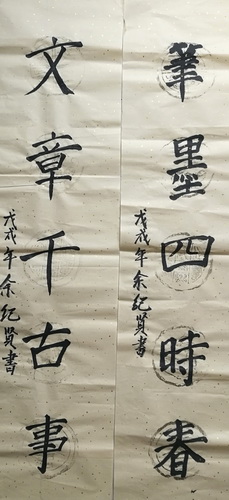 筆墨四時春
戊戌年余纪贤書
文章千古事
戊戌年余纪贤書